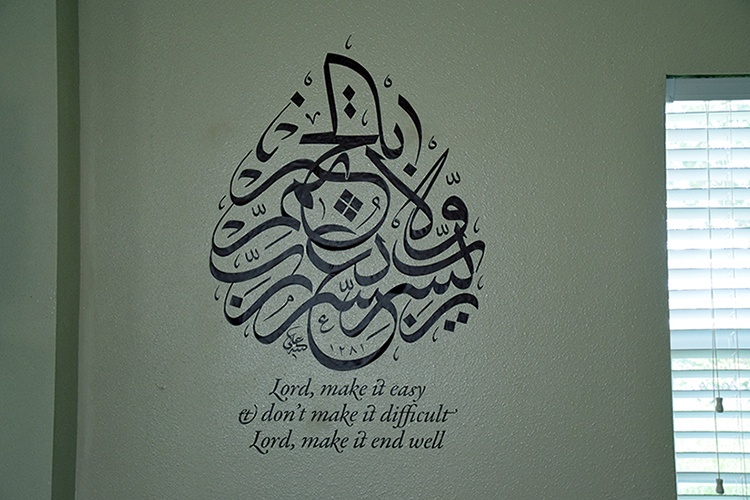 رب يسر ولا تعسر رب تمم بالخير
١٢٨١
Lord, make it easy
& don't make it difficult
Lord, make it end well